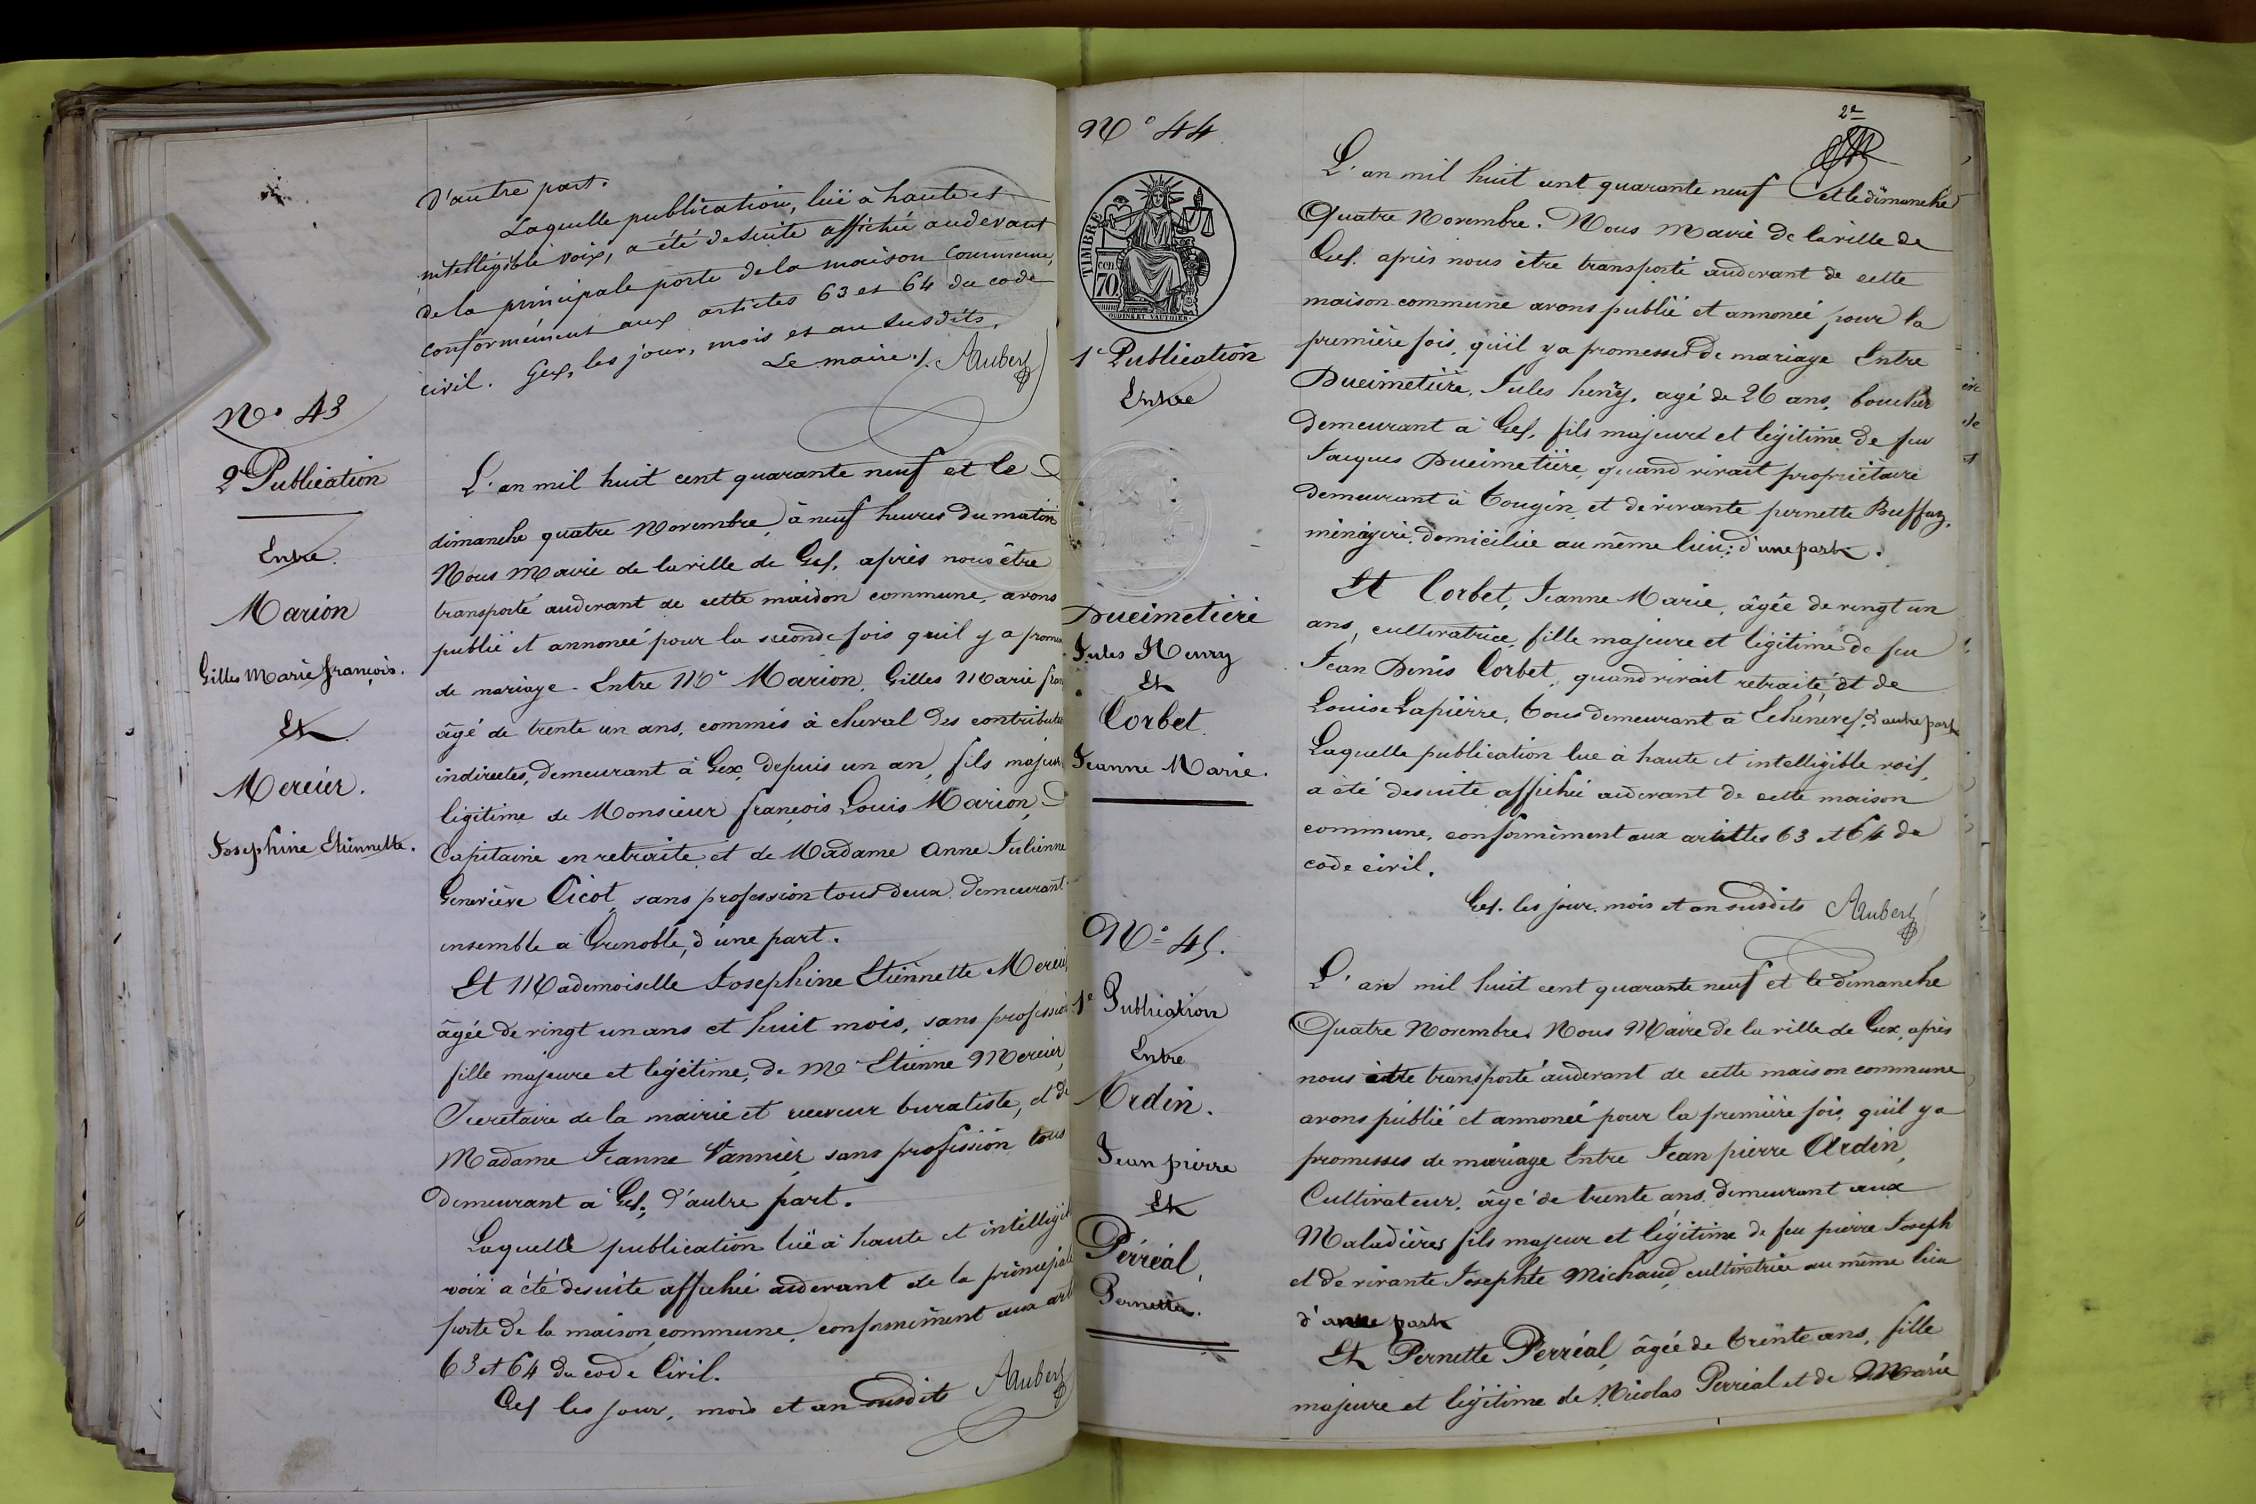 d'autre part.
Laquelle publication, lue à haute et
intelligible voix, a été de suite affichée au devant
de la principale porte de la maison Commune,
conformément aux articles 63 et 64 du code
civil. Gex, les jour, mois et an susdits.
Le maire /. Aubert
N° 43
2e Publication
Entre
Marion
Gilles Marie françois.
Et
Mercier.
Josephine Etiennette.
L'an mil huit cent quarante neuf et le
dimanche quatre Novembre, à neuf heures du matin
Nous Maire de la ville de Gex, après nous être
transporté audevant de cette maison commune, avons
publié et annoncé pour la seconde fois qu'il y a prome
de mariage. Entre Mr Marion, Gilles Marie fran
âgé de trente un ans, commis à cheval des contribut
indirectes, demeurant à Gex, depuis un an, fils majeur
légitime de Monsieur françois Louis Marion,
Capitaine en retraite et de Madame Anne Julienne
Geneviève Cicot, sans profession tous deux demeurant
ensemble à Grenoble, d'une part.
Et Mademoiselle Josephine Etiennette Mercier
âgée de vingt un ans et huit mois, sans profession
fille majeure et légitime, de Mr Etienne Mercier,
Secretaire de la mairie et receveur buraliste, et de
Madame Jeanne Vannier sans profession tous
demeurant à Gex, d'autre part.
Laquelle publication lue à haute et intelligib
voix a été desuite affichée audevant de la principale
porte de la maison commune, conformément aux art
63 et 64 du code Civil.
Gex les jour, mois et an susdits Aubert
2e
N° 44
TIMBRE
70
1e Publication
Entre
Ducimetière
Jules Henry
Et
Corbet
Jeanne Marie.
L'an mil huit cent quarante neuf et le dimanche
Quatre Novembre. Nous Maire de la ville de
Gex. après nous être transporté audevant de cette
maison commune avons publié et annoncé pour la
première fois, qu'il y a promesses de mariage Entre
Ducimetière, Jules henry, agé de 26 ans, boucher
demeurant à Gex, fils majeur et légitime de feu
Jacques Ducimetière, quand vivait propriétaire
demeurant à Tougin, et de vivante pernette Buffaz,
ménagère, domiciliée au même lieu; d'une part.
Et Corbet, Jeanne Marie, âgée de vingt un
ans, cultivatrice, fille majeure et légitime de feu
Jean Denis Corbet, quand vivait retraité, et de
Louise Lapierre, tous demeurant à Echenevex, d'autre part
Laquelle publication lue à haute et intelligible voix,
a été desuite affichée audevant de cette maison
commune, conformément aux articles 63 et 64 de
code civil.
Gex. les jour, mois et an susdits Aubert
N° 45.
1e Publication
Entre
Ardin.
Jean pierre
Et
Perréal,
Pernette.
L'an mil huit cent quarante neuf et le dimanche
Quatre Novembre. Nous Maire de la ville de Gex, après
nous être transporté audevant de cette maison commune
avons publié et annoncé pour la première fois, qu'il y a
promesses de mariage Entre Jean pierre Ardin,
Cultivateur, âgé de trente ans, demeurant aux
Maladières fils majeur et légitime de feu pierre Joseph
et de vivante Josephte Michaud, cultivatrice au même lieu
d'une part
Et Pernette Perréal, âgée de trente ans, fille
majeure et légitime de Nicolas Perréal et de Marie